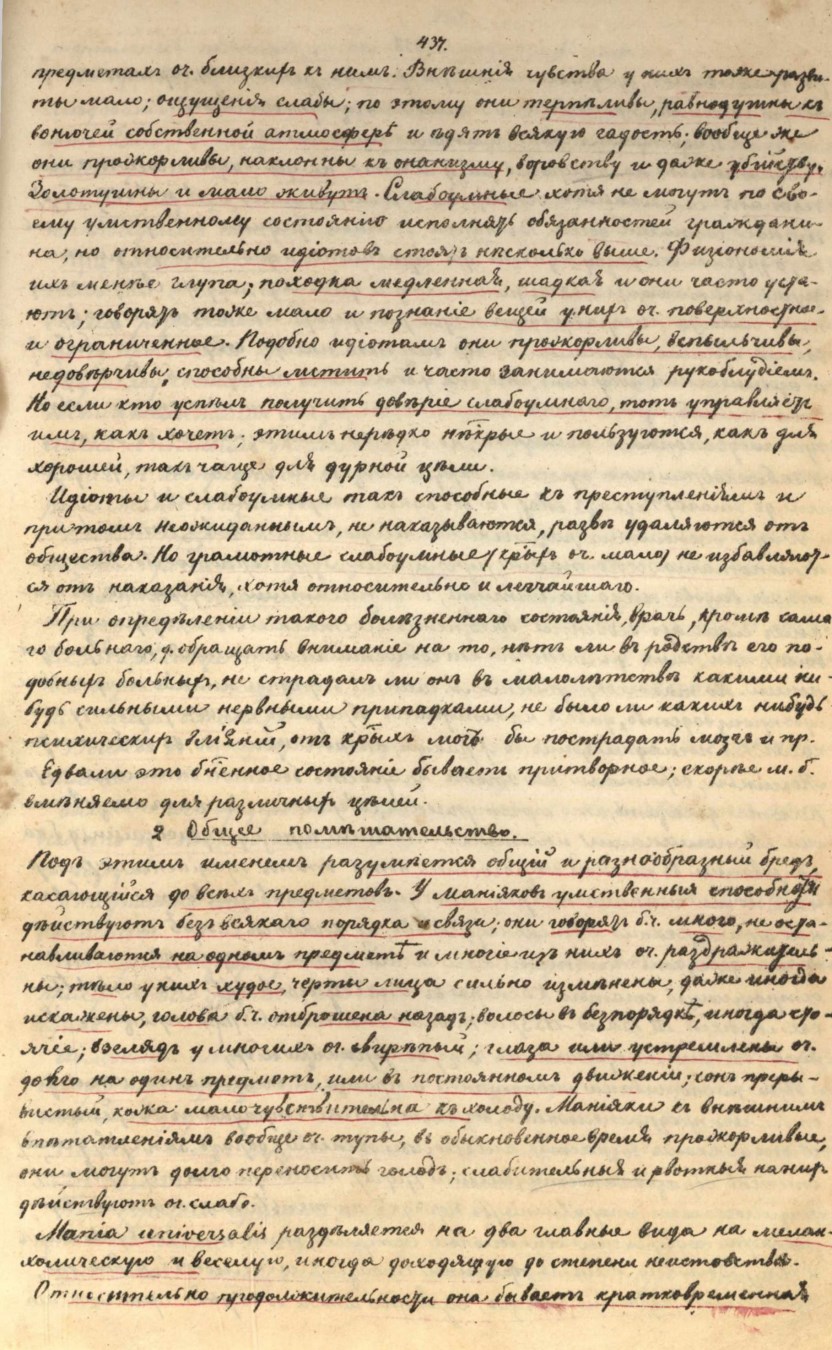 437.
предметахъ оч. близкихъ къ нимъ. Внѣшнія чувства у нихъ тоже разви-
ты мало; ощущенія слабы; по этому они терпѣливы, равнодушны къ
вонючей собственной атмосферѣ и ѣдятъ всякую гадость; вообще же
они прожорливы, наклонны къ онанизму, воровству и даже убійству.
Золотушны и мало живутъ. Слабоумные хотя не могутъ по сво-
ему умственному состоянію исполнять обязанностей граждани-
на, но относительно идіотовъ стоятъ нѣсколько выше. Физіономія
ихъ менѣе глупа; походка медленная, шадкая и они часто уста-
ютъ; говорятъ тоже мало и познаніе вещей у нихъ оч. поверхностное
и ограниченное. Подобно идіотамъ они прожорливы, вспыльчивы,
недовѣрчивы, способны мстить и часто занимаются рукоблудіемъ.
Но если кто успѣлъ получить довѣріе слабоумнаго, тотъ управляетъ
имъ, какъ хочетъ; этимъ нерѣдко нѣкрые и пользуются, какъ для
хорошей, такъ чаще для дурной цѣли.
Идіоты и слабоумные такъ способные къ преступленіямъ и
притомъ неожиданнымъ, не наказываются, развѣ удаляются отъ
общества. Но грамотные слабоумные (крыхъ оч. мало) не избавляют-
ся отъ наказанія, хотя относительно и легчайшаго.
При опредѣленіи такого болѣзненнаго состоянія, врачъ, кромѣ сама
го больнаго, д. обращать вниманіе на то, нѣтъ ли въ родствѣ его по-
добныхъ больныхъ, не страдалъ ли онъ въ малолѣтствѣ какими ни-
будь сильными нервными припадками, не было ли какихъ нибудь
психическихъ вліяній, отъ крыхъ могъ бы пострадать мозгъ и пр.
Едвали это бненное состояніе бываетъ притворное; скорѣе м. б.
вмѣняемо для различныхъ цѣлей.
2 Общее помѣшательство.
Подъ этимъ именемъ разумѣется общій и разнообразный бредъ,
касающійся до всѣхъ предметовъ. У маніяковъ умственныя способности
дѣйствуютъ безъ всякаго порядка и связи; они говорятъ б.ч. много, не оста-
навливаются на одномъ предметѣ и многіе изъ нихъ оч. раздражитель-
ны; тѣло у нихъ худое, черты лица сильно измѣнены, даже иногда
искажены, голова б.ч. отброшена назадъ; волосы въ безпорядкѣ, иногда сто-
ячіе; взглядъ у многихъ оч. свирѣпый; глаза или устремлены оч.
долго на одинъ предметъ, или въ постоянномъ движеніи; сонъ преры-
вистый, кожа мало чувствительна къ холоду. Маніяки къ внѣшнимъ
впѣчатленіямъ вообще оч. тупы, въ обыкновенное время прожорливые,
они могутъ долго переносить голодъ; слабительныя и рвотныя на нихъ
дѣйствуютъ оч. слабо.
Mania universalis раздѣляется на два главные вида на мелан-
холическую и веселую, иногда доходящую до степени неистовства.
Относительно продолжительности она бываетъ кратковременная